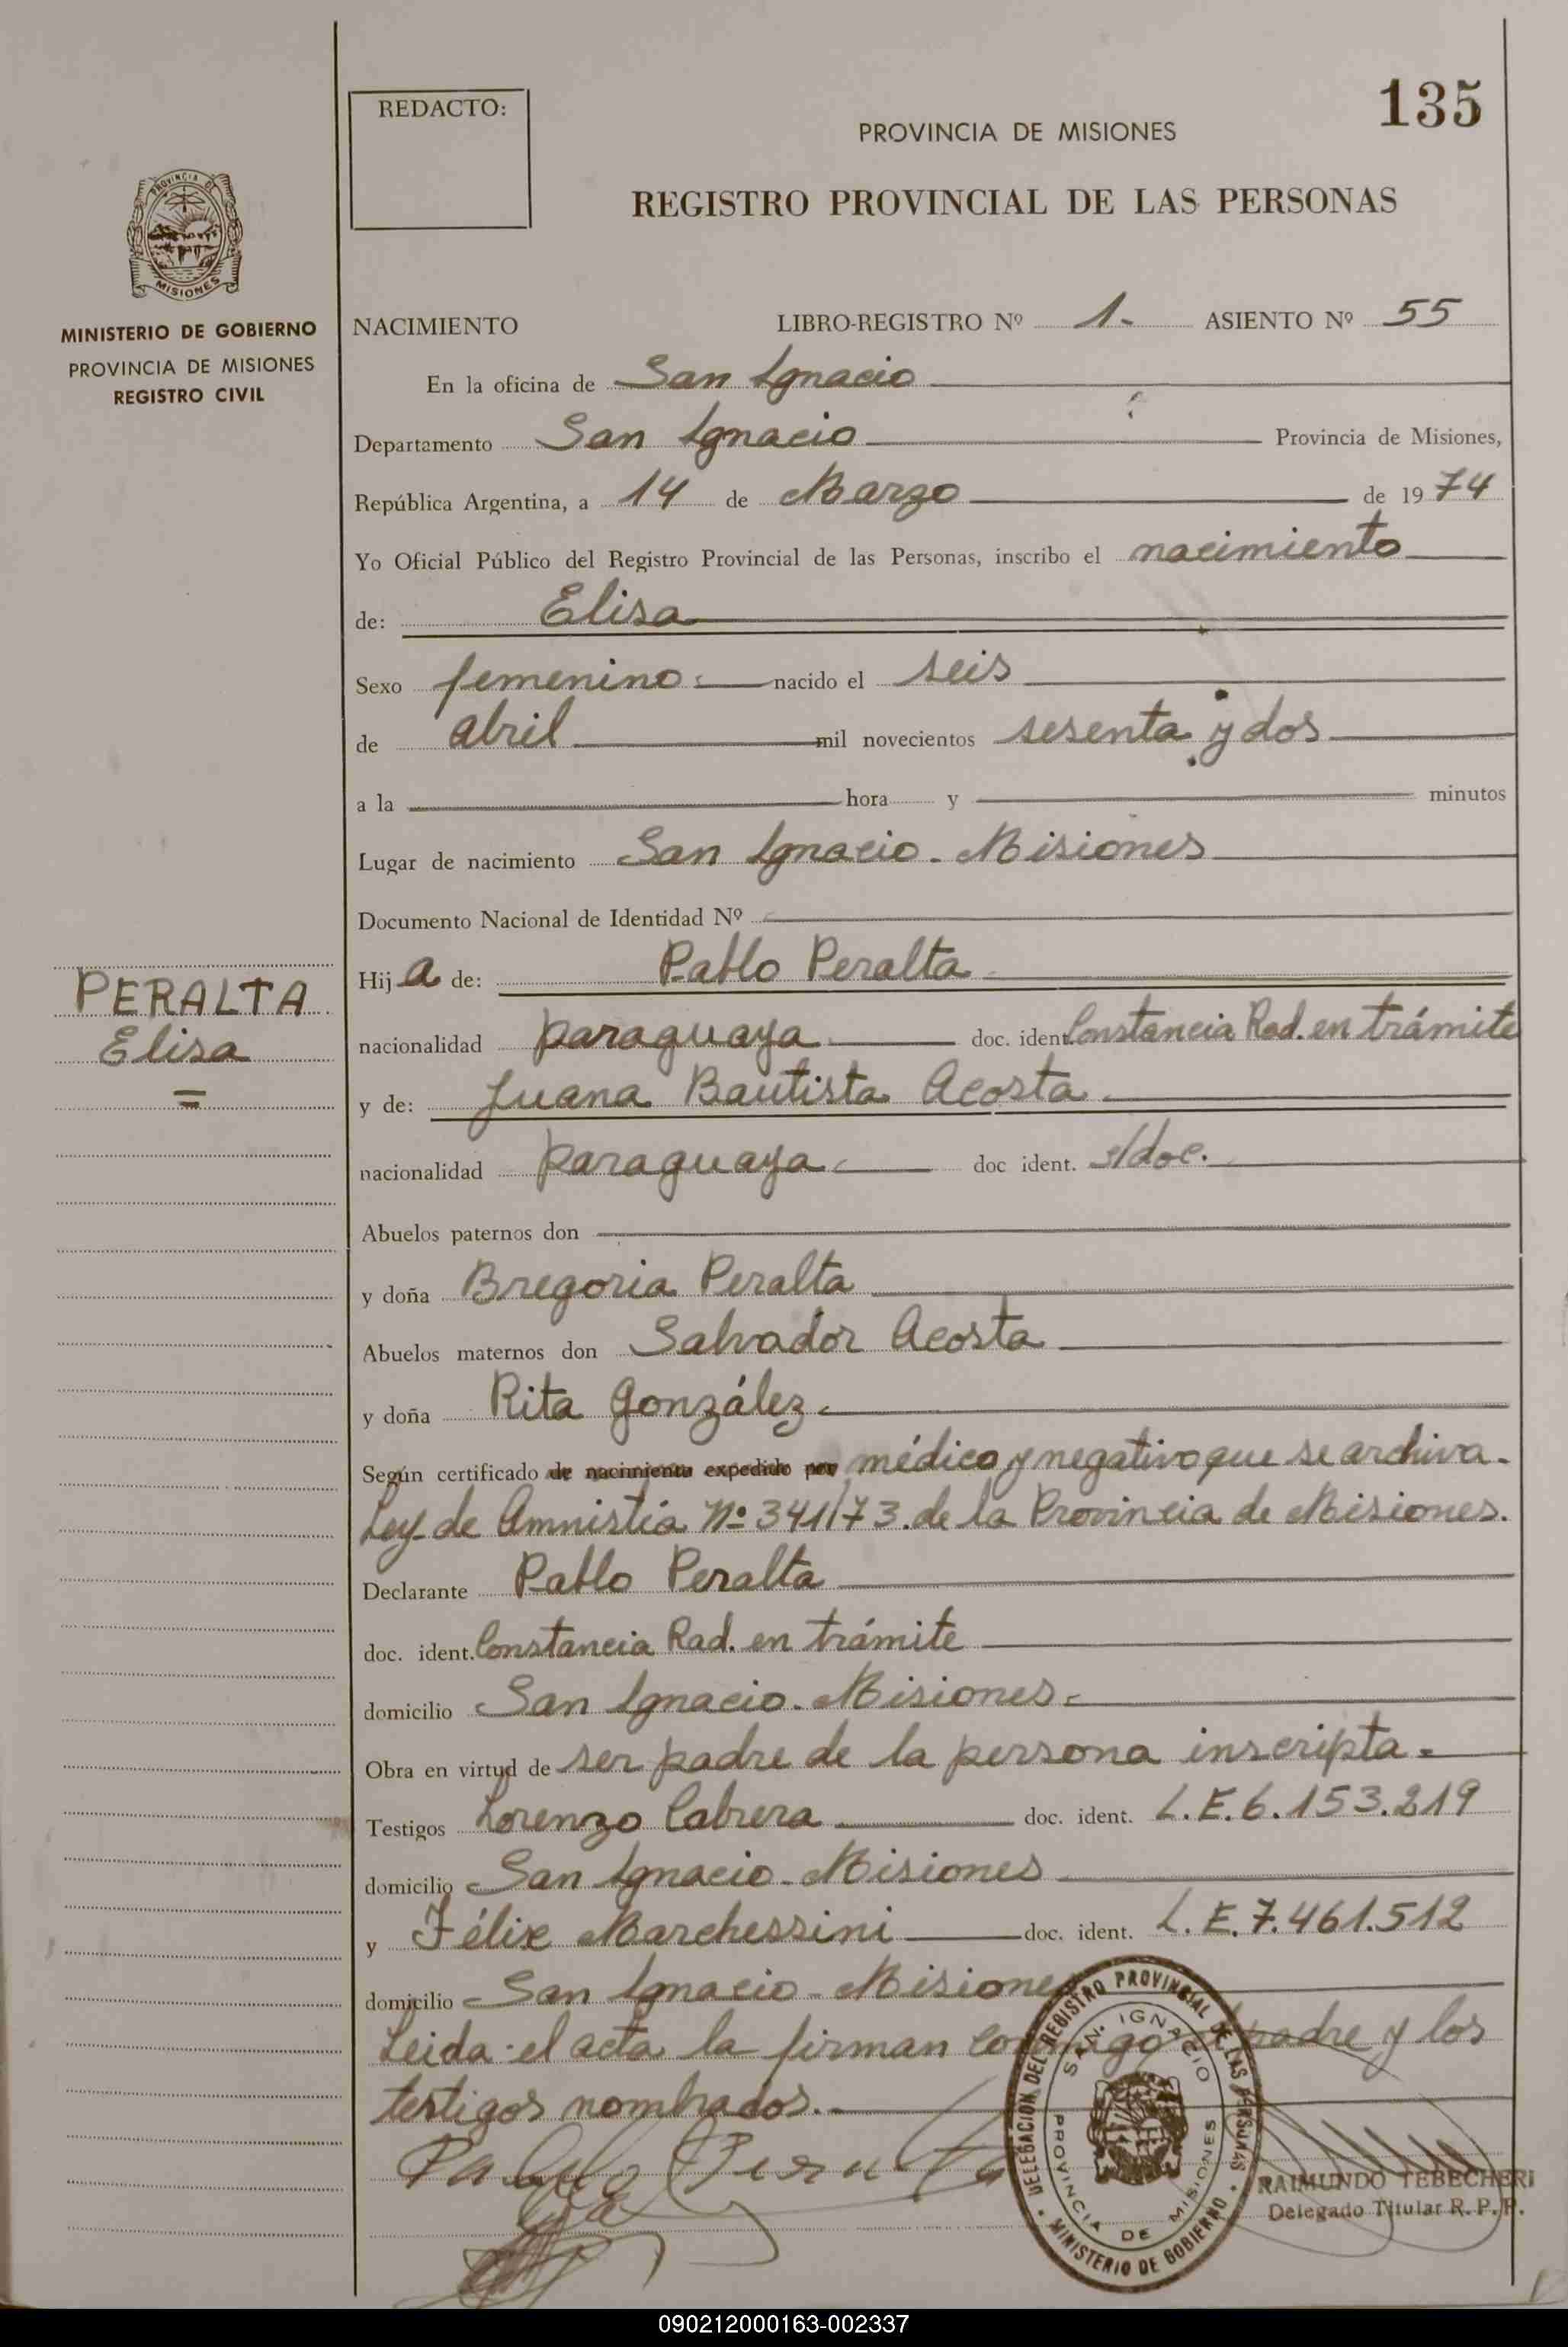 135
REDACTO:
PROVINCIA DE MISIONES
REGISTRO PROVINCIAL DE LAS PERSONAS
PROVINCIA DE
MISIONES
MINISTERIO DE GOBIERNO
PROVINCIA DE MISIONES
REGISTRO CIVIL
NACIMIENTO LIBRO-REGISTRO Nº 1.- ASIENTO Nº 55
En la oficina de San Ignacio
Departamento San Ignacio Provincia de Misiones,
República Argentina, a 14 de Marzo de 1974
Yo Oficial Público del Registro Provincial de las Personas, inscribo el nacimiento
de: Elisa
Sexo femenino nacido el seis
de abril mil novecientos sesenta y dos
a la hora y minutos
Lugar de nacimiento San Ignacio - Misiones
Documento Nacional de Identidad Nº
Hija de: Pablo Peralta
PERALTA
Elisa
nacionalidad paraguaya doc. ident. Constancia Rad. en trámite
y de: Juana Bautista Acosta
nacionalidad paraguaya doc ident. s/doc.
Abuelos paternos don
y doña Bregoria Peralta
Abuelos maternos don Salvador Acosta
y doña Rita González
Según certificado de nacimiento expedido por médico y negativo que se archiva.
Ley de Amnistía Nº 341/73 de la Provincia de Misiones.
Declarante Pablo Peralta
doc. ident. Constancia Rad. en trámite
domicilio San Ignacio - Misiones
Obra en virtud de ser padre de la persona inscripta.
Testigos Lorenzo Cabrera doc. ident. L.E. 6.153.219
domicilio San Ignacio - Misiones
y Félix Marchessini doc. ident. L.E. 7.461.512
domicilio San Ignacio - Misiones
Leida el acta la firman conmigo el padre y los
testigos nombrados.
Pablo Peralta
DELEGACION DEL REGISTRO PROVINCIAL DE LAS PERSONAS
MINISTERIO DE GOBIERNO
SAN IGNACIO
PROVINCIA DE MISIONES
RAIMUNDO TEBECHERI
Delegado Titular R. P. P.
090212000163-002337